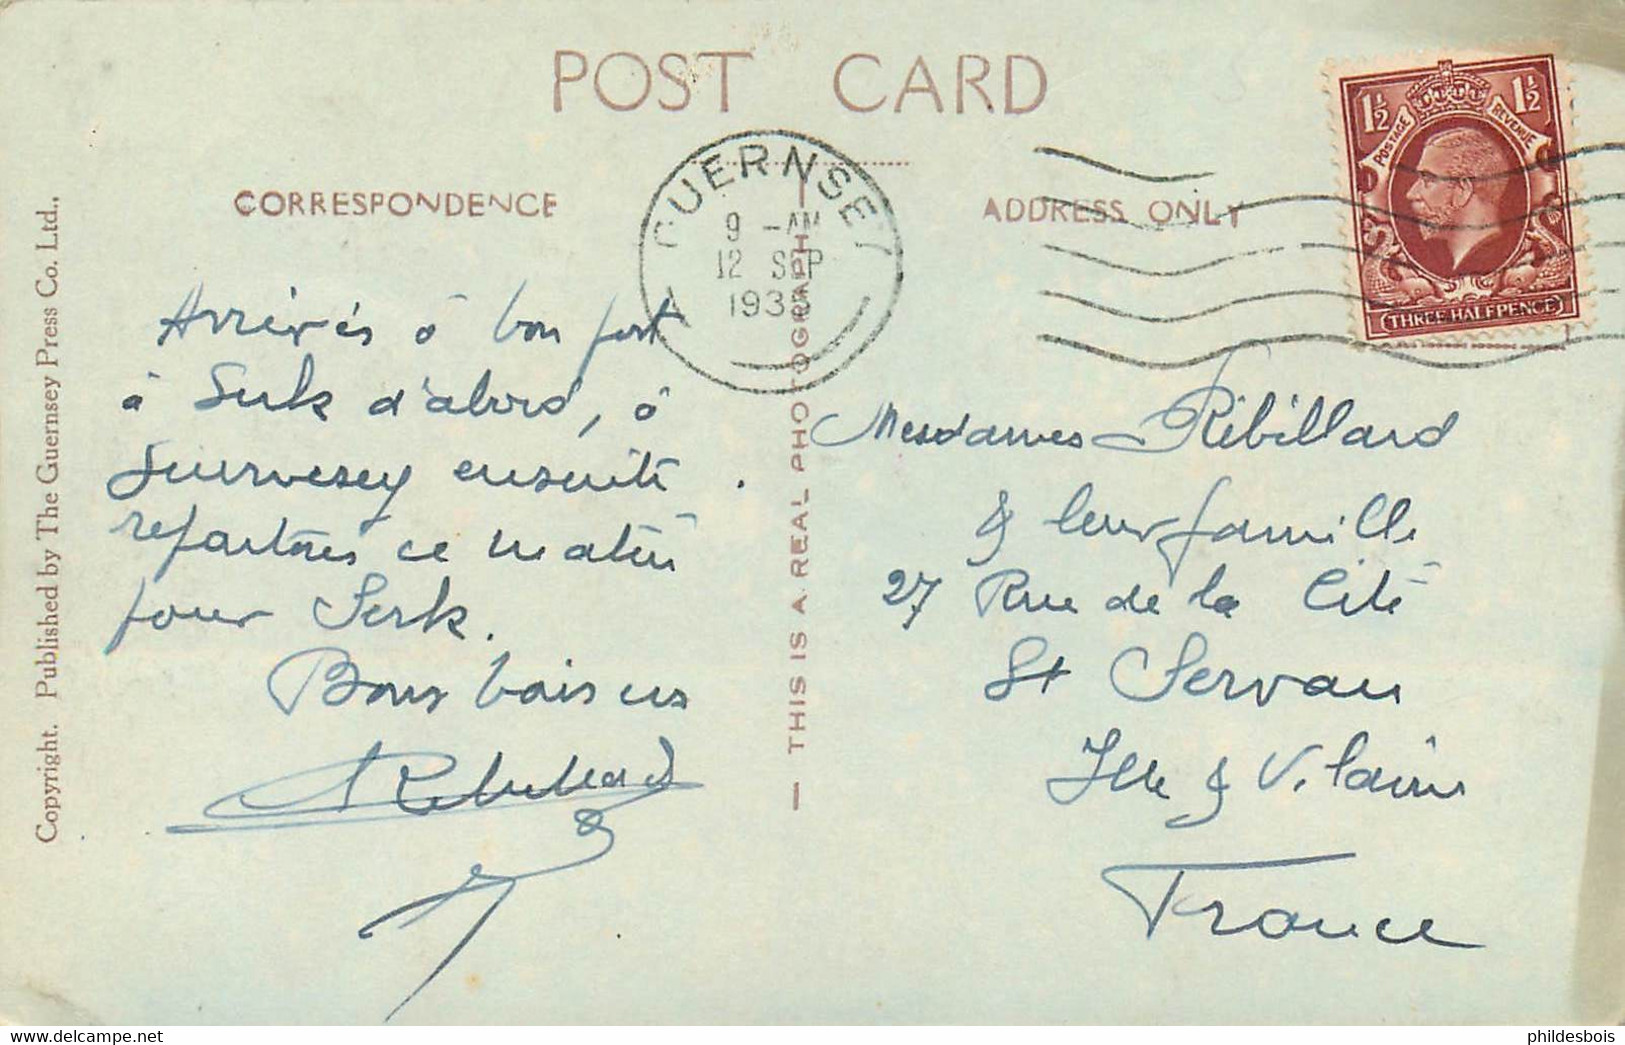 POST CARD
CORRESPONDENCE
ADDRESS ONLY
GUERNSEY
9 - AM
12 SEP
193
POSTAGE
REVENUE
1½
1½
THREE HALFPENCE
Arrivés à bon port
à Serk d'abord, à
Guernesey ensuite.
repartons ce matin
pour Serk.
Bons baisers
Rebillard
Mesdames Rébillard
& leur famille
27 Rue de la Cité
St Servan
Ille & Vilaine
France
THIS IS A REAL PHOTOGRAPH
Copyright. Published by The Guernsey Press Co. Ltd.,
phildesbois